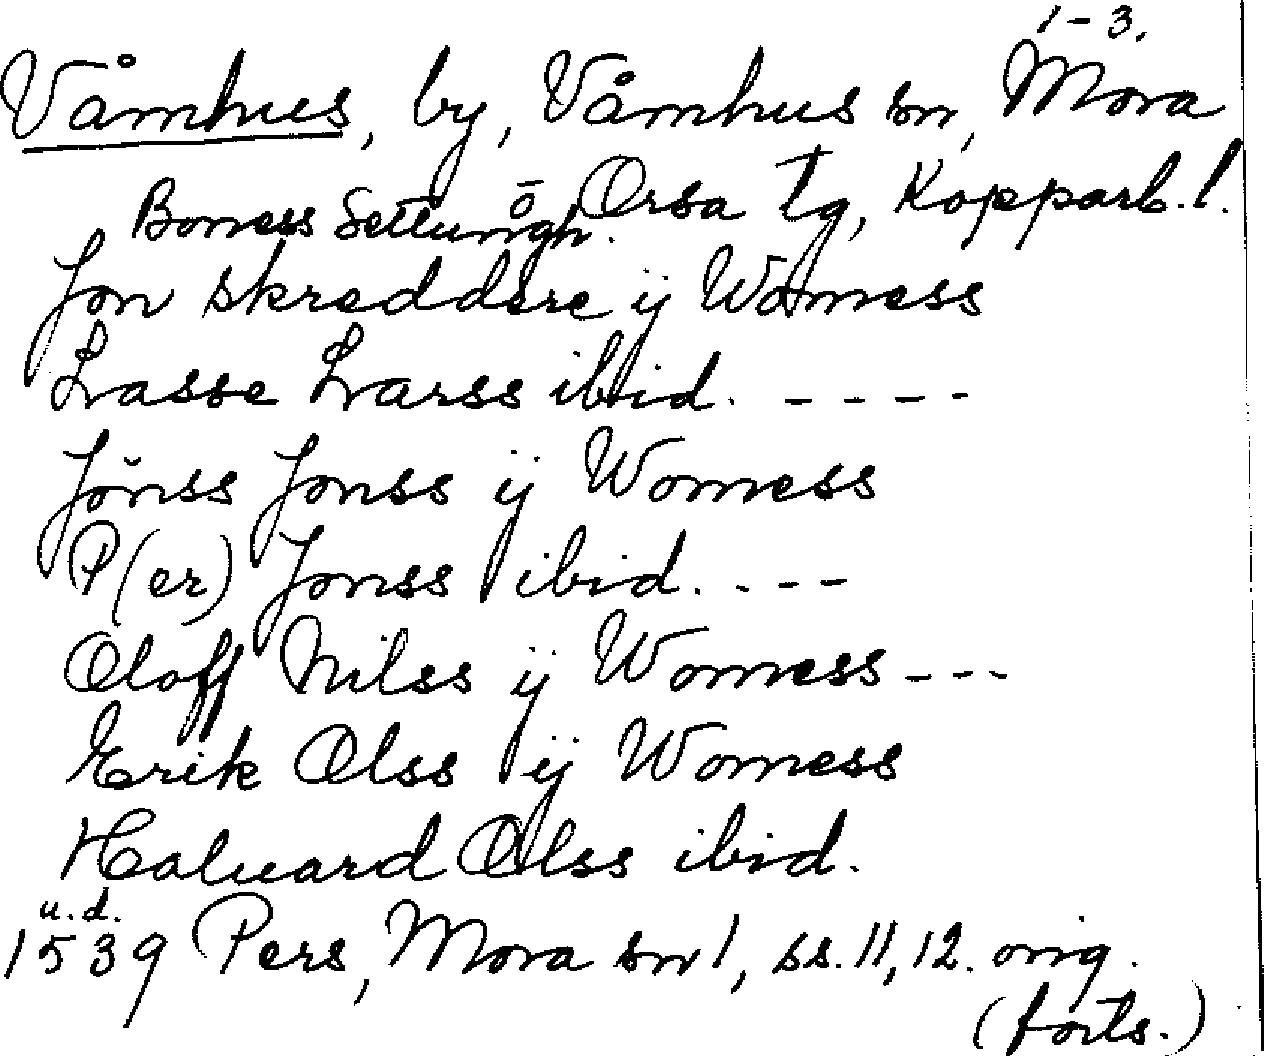 1-3.
Våmhus, by, Våmhus sn, Mora
o Orsa tg, Kopparb. l.
Bomess Settungh.
Jon skreddere ij Womess
Lasse Larss ibid. - - - -
Jönss Jonss ij Womess
P(er) Jonss ibid. - - -
Oloff Nilss ij Womess - - -
Erik Olss ij Womess
Haluard Olss ibid.
u.d.
1539 Pers, Mora sn 1, ss. 11, 12. orig.
(forts.)